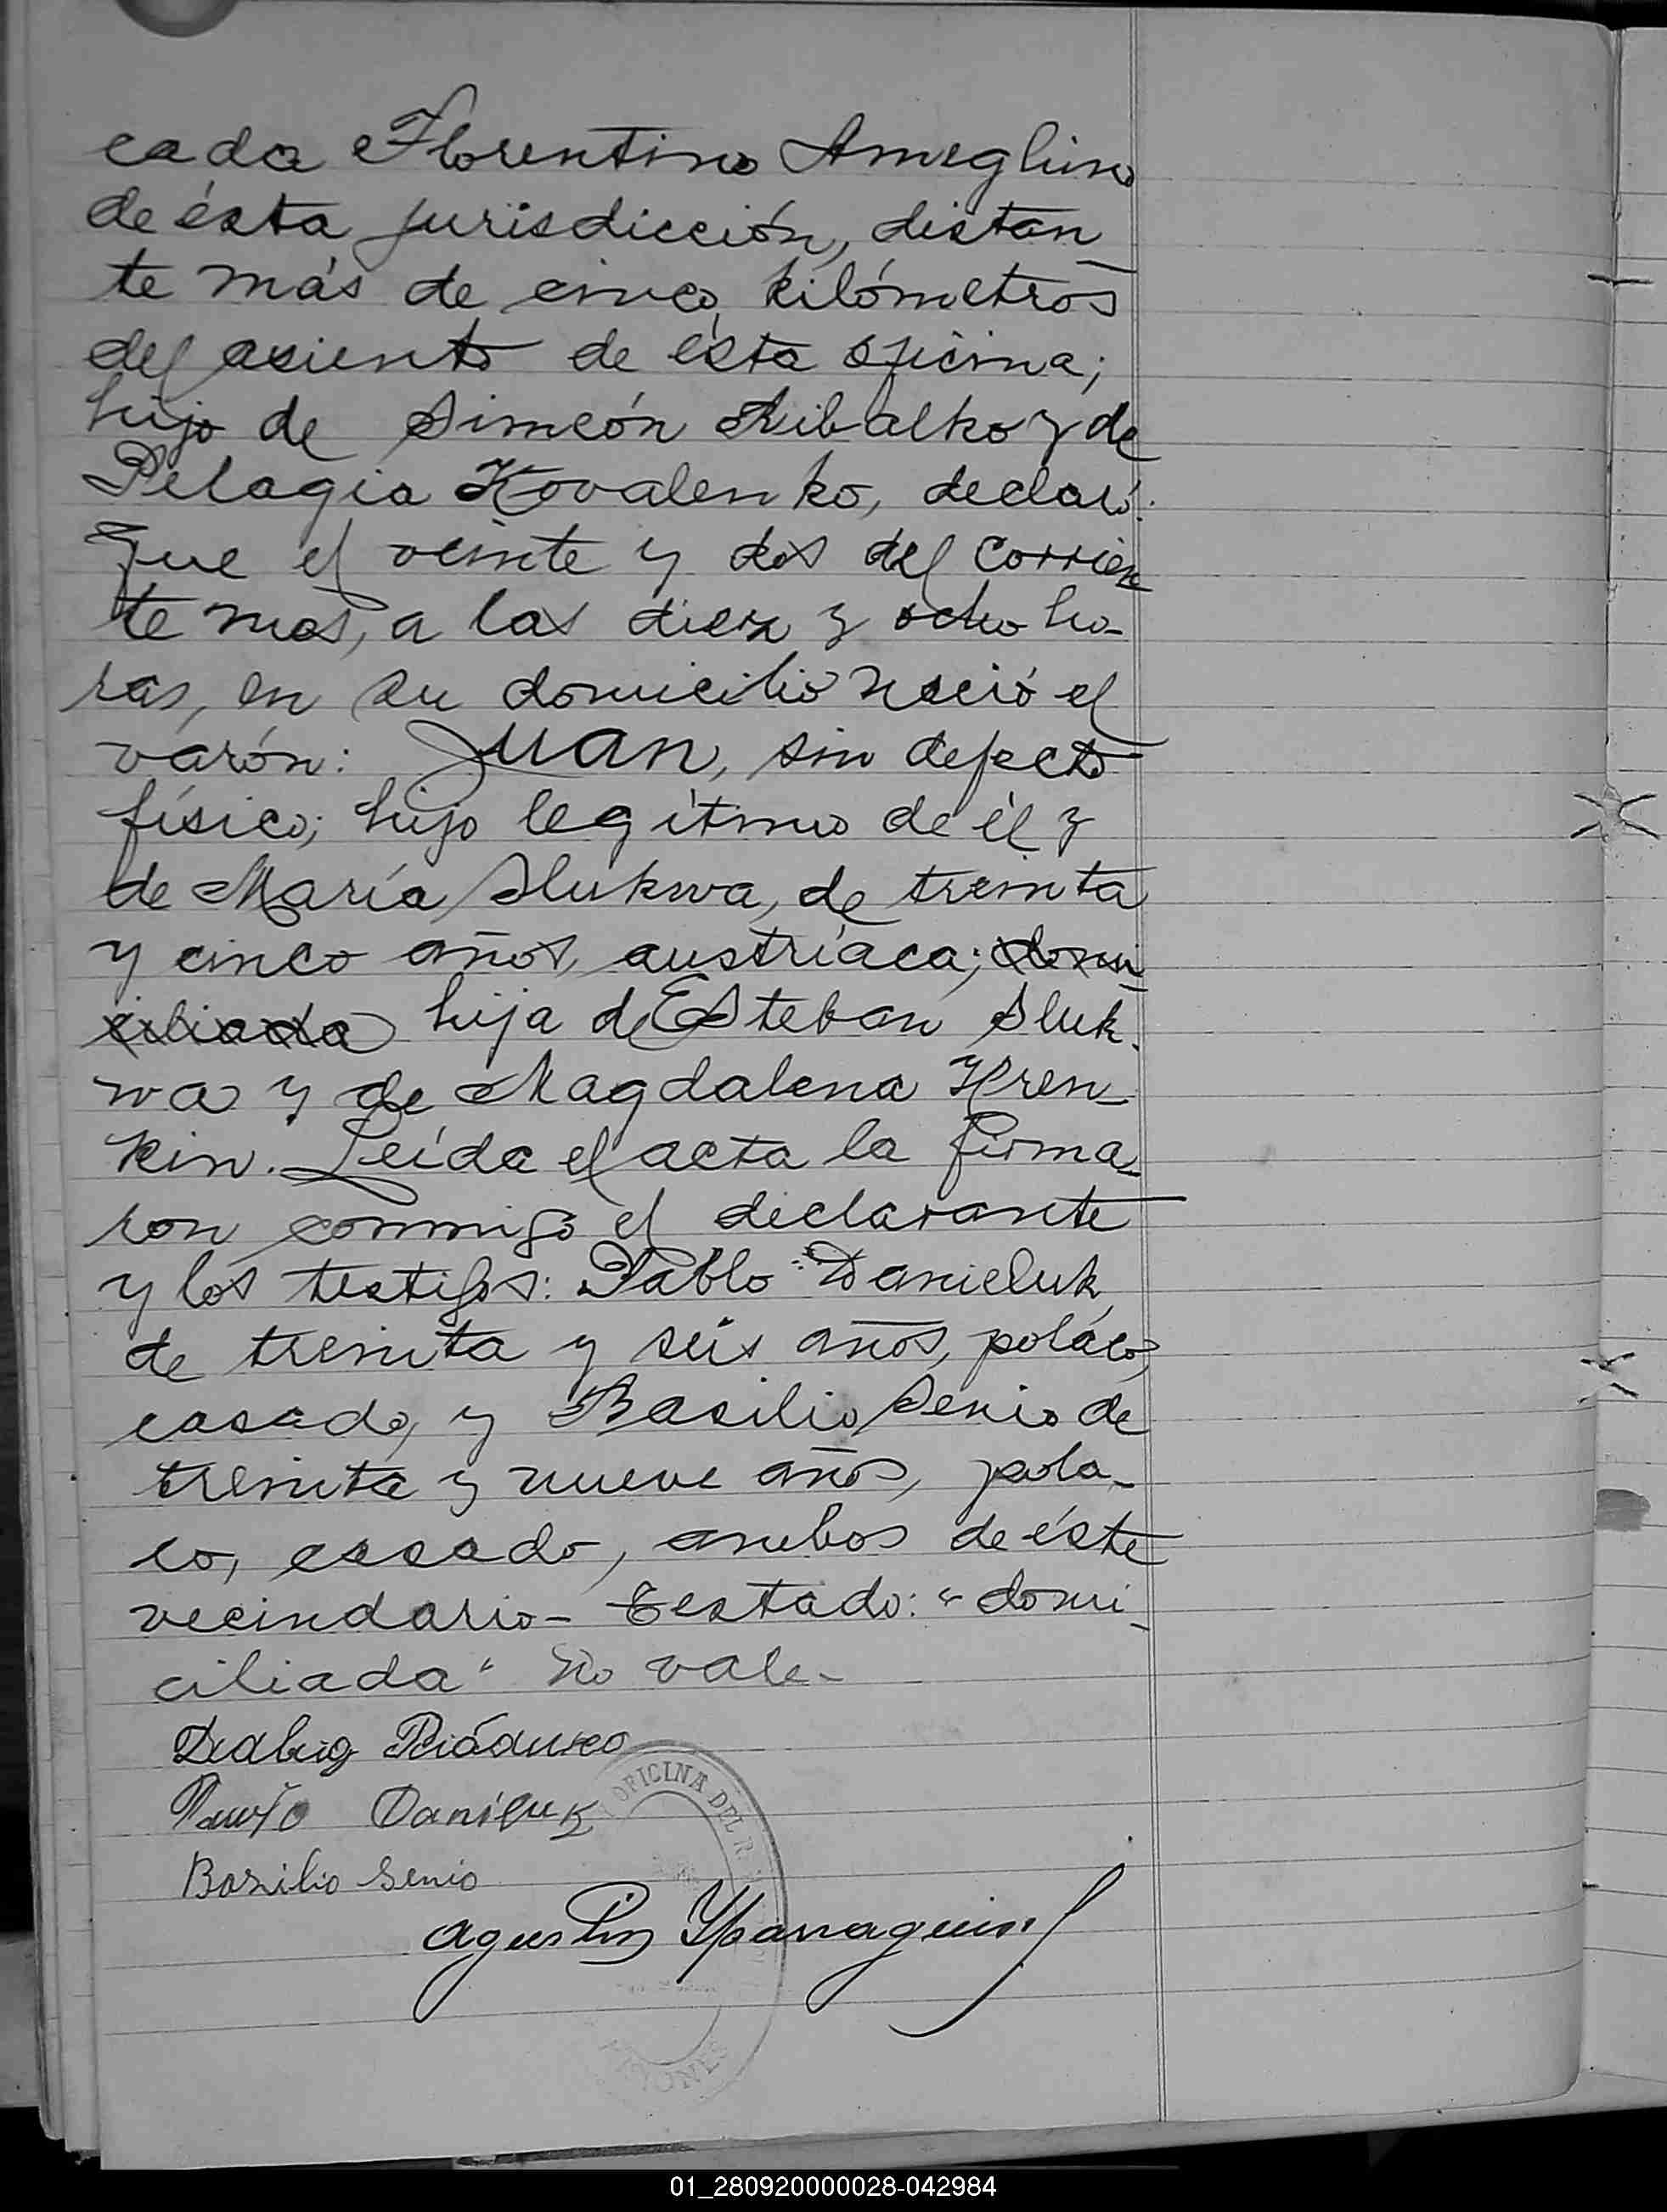 cada Florentino Ameghino
de ésta jurisdicción, distan-
te más de cinco kilómetros
del asiento de ésta oficina;
hijo de Simeón Ribalko y de
Pelagia Kovalenko, declaró:
Que el veinte y dos del corrien
te mes, a las diez y ocho ho-
ras, en su domicilio nació el
varón: Juan, sin defecto
físico; hijo legítimo de él y
de María Slukwa, de treinta
y cinco años, austríaca; domi-
ciliada hija de Esteban Sluk-
wa y de Magdalena Hren-
kin. Leída el acta la firma-
ron conmigo el declarante
y los testigos: Pablo Danieluk,
de treinta y seis años, poláco,
casado, y Basilio Senio de
treinta y nueve años, pola-
co, casado, ambos de éste
vecindario- Testado: "domi-
ciliada" no vale-
Daniluk
Bazilio Senio
Agustin
OFICINA DEL R
01_280920000028-042984